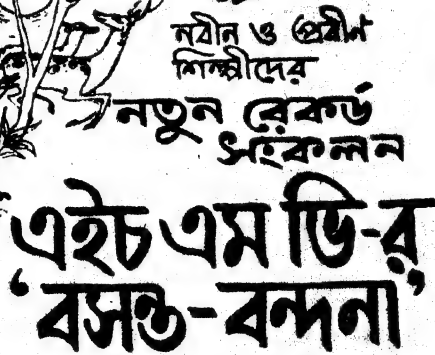 নবীন ও প্রবীণ
শিল্পীদের
নতুন রেকর্ড
সংকলন
এইচ এম ভি-র
‘বসন্ত-বন্দনা’